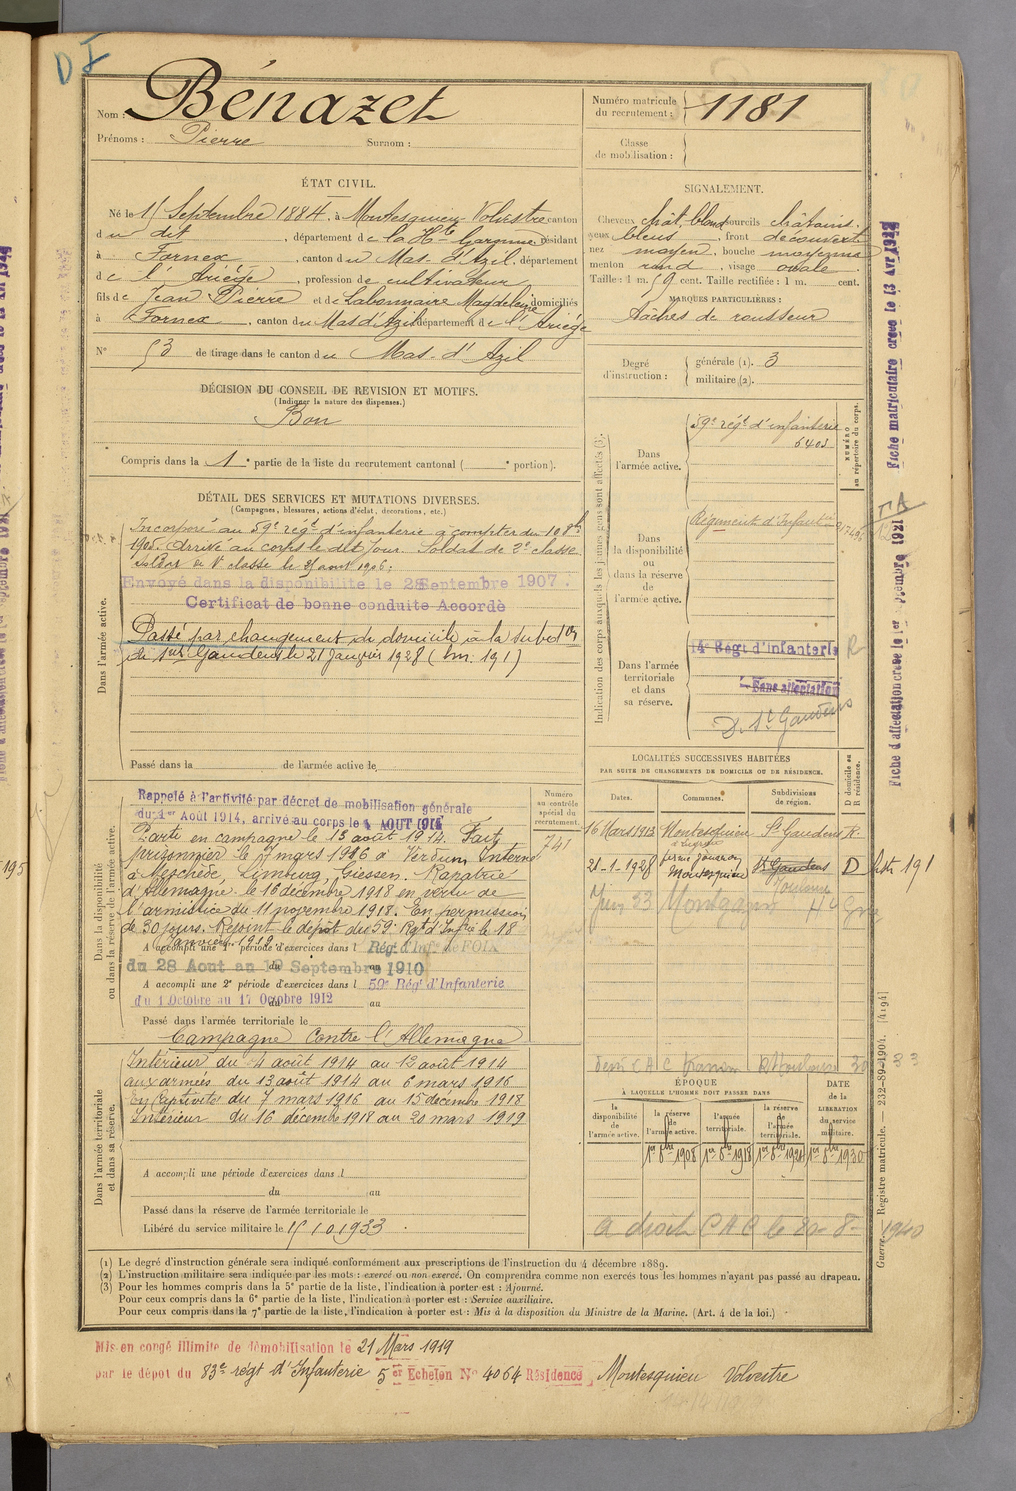 D I
Nom : Bénazet
Prénoms : Pierre Surnom :
Numéro matricule du recrutement : 1181
Classe de mobilisation :
ÉTAT CIVIL.
Né le 15 Septembre 1884, à Montesquieu-Volvestre canton
du dit, département de la Hte Garonne, résidant
à Fornex, canton du Mas d'Azil, département
de l'Ariège, profession de cultivateur
fils de Jean Pierre et de Labonnaire Magdeleine domiciliés
à Fornex, canton du Mas d'Azil département de l'Ariège
N° 53 de tirage dans le canton du Mas-d'Azil
SIGNALEMENT.
Cheveux chât. blond sourcils châtains.
yeux bleus, front découvert
nez moyen, bouche moyenne
menton rond, visage ovale
Taille : 1 m. 59 cent. Taille rectifiée : 1 m. cent.
MARQUES PARTICULIÈRES :
tâches de rousseur
Degré d'instruction : générale (1). 3
militaire (2).
DÉCISION DU CONSEIL DE REVISION ET MOTIFS.
(Indiquer la nature des dispenses.)
Bon
Compris dans la 1e partie de la liste du recrutement cantonal ( e portion).
DÉTAIL DES SERVICES ET MUTATIONS DIVERSES.
(Campagnes, blessures, actions d'éclat, décorations, etc.)
Dans l'armée active.
Incorporé au 59e régt d'infanterie à compter du 10 8bre
1905. Arrivé au corps le dit jour. Soldat de 2e classe
Envoyé dans la disponibilité le 28 Septembre 1907.
Certificat de bonne conduite Accordé
Passé par changement de domicile à la subdon
de St Gaudens le 21 Janvier 1928 (lm. 191)
Passé dans la de l'armée active le
Indication des corps auxquels les jeunes gens sont affectés (3).
NUMÉRO au répertoire du corps.
Dans l'armée active.
59e régt d'infanterie
6403
Dans la disponibilité ou dans la réserve de l'armée active.
Régiment d'Infantie
Dans l'armée territoriale et dans sa réserve.
14e Régt d'Infanterie R
Sans affectation
D. St Gaudens
Fiche matriculaire créée le 13 Avr 1922
Fiche d'affectation créée le 1er Septembre 1921
LOCALITÉS SUCCESSIVES HABITÉES
PAR SUITE DE CHANGEMENTS DE DOMICILE OU DE RÉSIDENCE.
Dates. Communes. Subdivisions de région. D domicile ou R résidence.
16 Mars 1913 Montesquieu St Gaudens R.
21-1-1928 Montesquieu St Gaudens D lista 191
Toulouse
Juin 33 Montgazin Hte Gne
Dans la disponibilité ou dans la réserve de l'armée active.
Numéro au contrôle spécial du recrutement.
741
Rappelé à l'activité par décret de mobilisation générale
du 1er Août 1914, arrivé au corps le 4 AOUT 1914
Parti en campagne le 13 août 1914. Fait
prisonnier le 7 mars 1916 à Verdun. Interné
à Meschède, Limburg, Giessen. Rapatrié
d'Allemagne le 16 décembre 1918 en vertu de
l'armistice du 11 novembre 1918. En permission
de 30 jours. Rejoint le dépôt du 59e Rgt d'Infie le 18
Janvier 1919.
A accompli une 1e période d'exercices dans l Régt d'Infie de FOIX
du 28 Aout au 19 Septembre 1910
A accompli une 2e période d'exercices dans l 59e Régt d'Infanterie
du 1 Octobre au 17 Octobre 1912
Passé dans l'armée territoriale le
Campagne Contre l'Allemagne
Dans l'armée territoriale et dans sa réserve.
Intérieur du 4 août 1914 au 12 août 1914
aux armées du 13 août 1914 au 6 mars 1916
En captivité du 7 mars 1916 au 15 décembre 1918
Intérieur du 16 décembre 1918 au 20 mars 1919
A accompli une période d'exercices dans l
du au
Passé dans la réserve de l'armée territoriale le
Libéré du service militaire le 15 10 1933.
ÉPOQUE
À LAQUELLE L'HOMME DOIT PASSER DANS
DATE de la LIBÉRATION du service militaire.
la disponibilité de l'armée active. la réserve de l'armée active. l'armée territoriale. la réserve de l'armée territoriale.
1er 8bre 1908 1er 8bre 1918 1er 8bre 1924 1er 8bre 1930
a droit CAC le 20-8-1940
Guerre. Registre matricule. — 232-89-1904. [4194]
(1) Le degré d'instruction générale sera indiqué conformément aux prescriptions de l'instruction du 4 décembre 1889.
(2) L'instruction militaire sera indiquée par les mots : exercé ou non exercé. On comprendra comme non exercés tous les hommes n'ayant pas passé au drapeau.
(3) Pour les hommes compris dans la 5e partie de la liste, l'indication à porter est : Ajourné.
Pour ceux compris dans la 6e partie de la liste, l'indication à porter est : Service auxiliaire.
Pour ceux compris dans la 7e partie de la liste, l'indication à porter est : Mis à la disposition du Ministre de la Marine. (Art. 4 de la loi.)
Mis en congé illimité de démobilisation le 21 Mars 1919
par le dépot du 83e régt d'Infanterie 5er Echelon No 4064 Résidence Montesquieu Volvestre